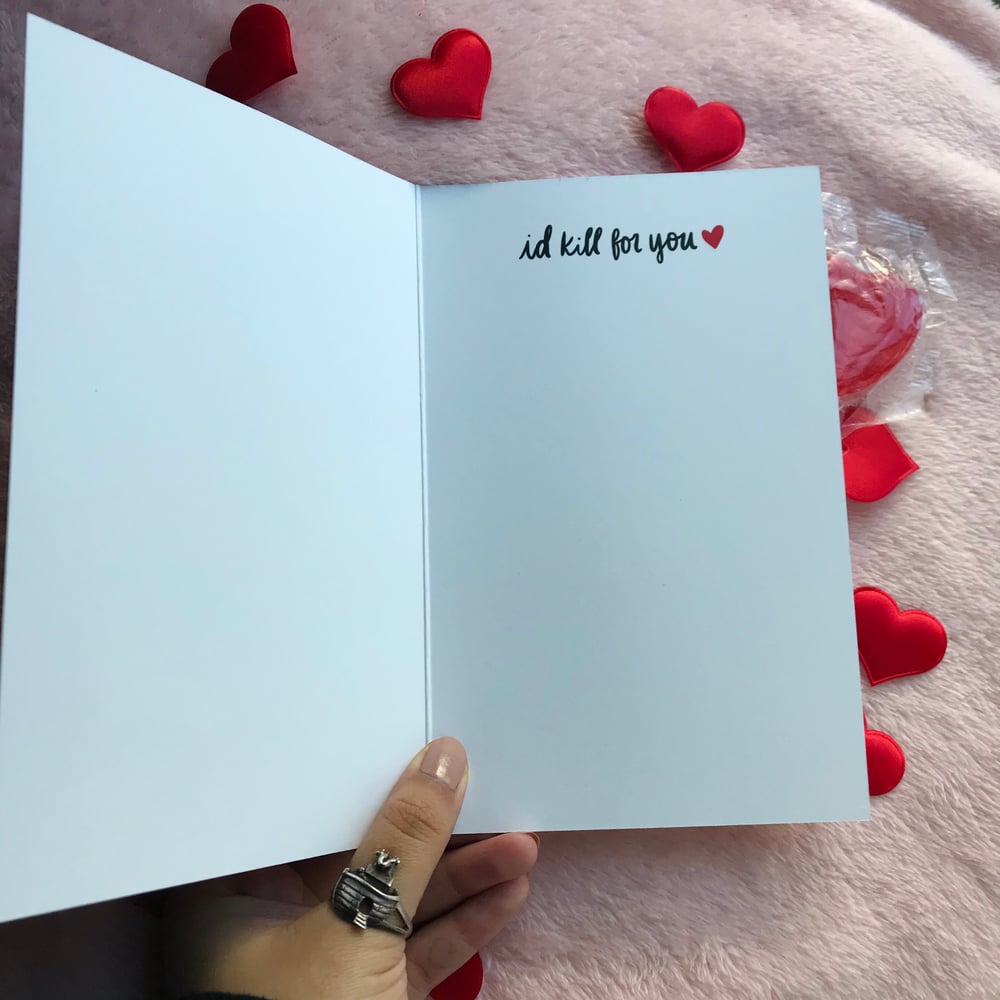 id kill for you